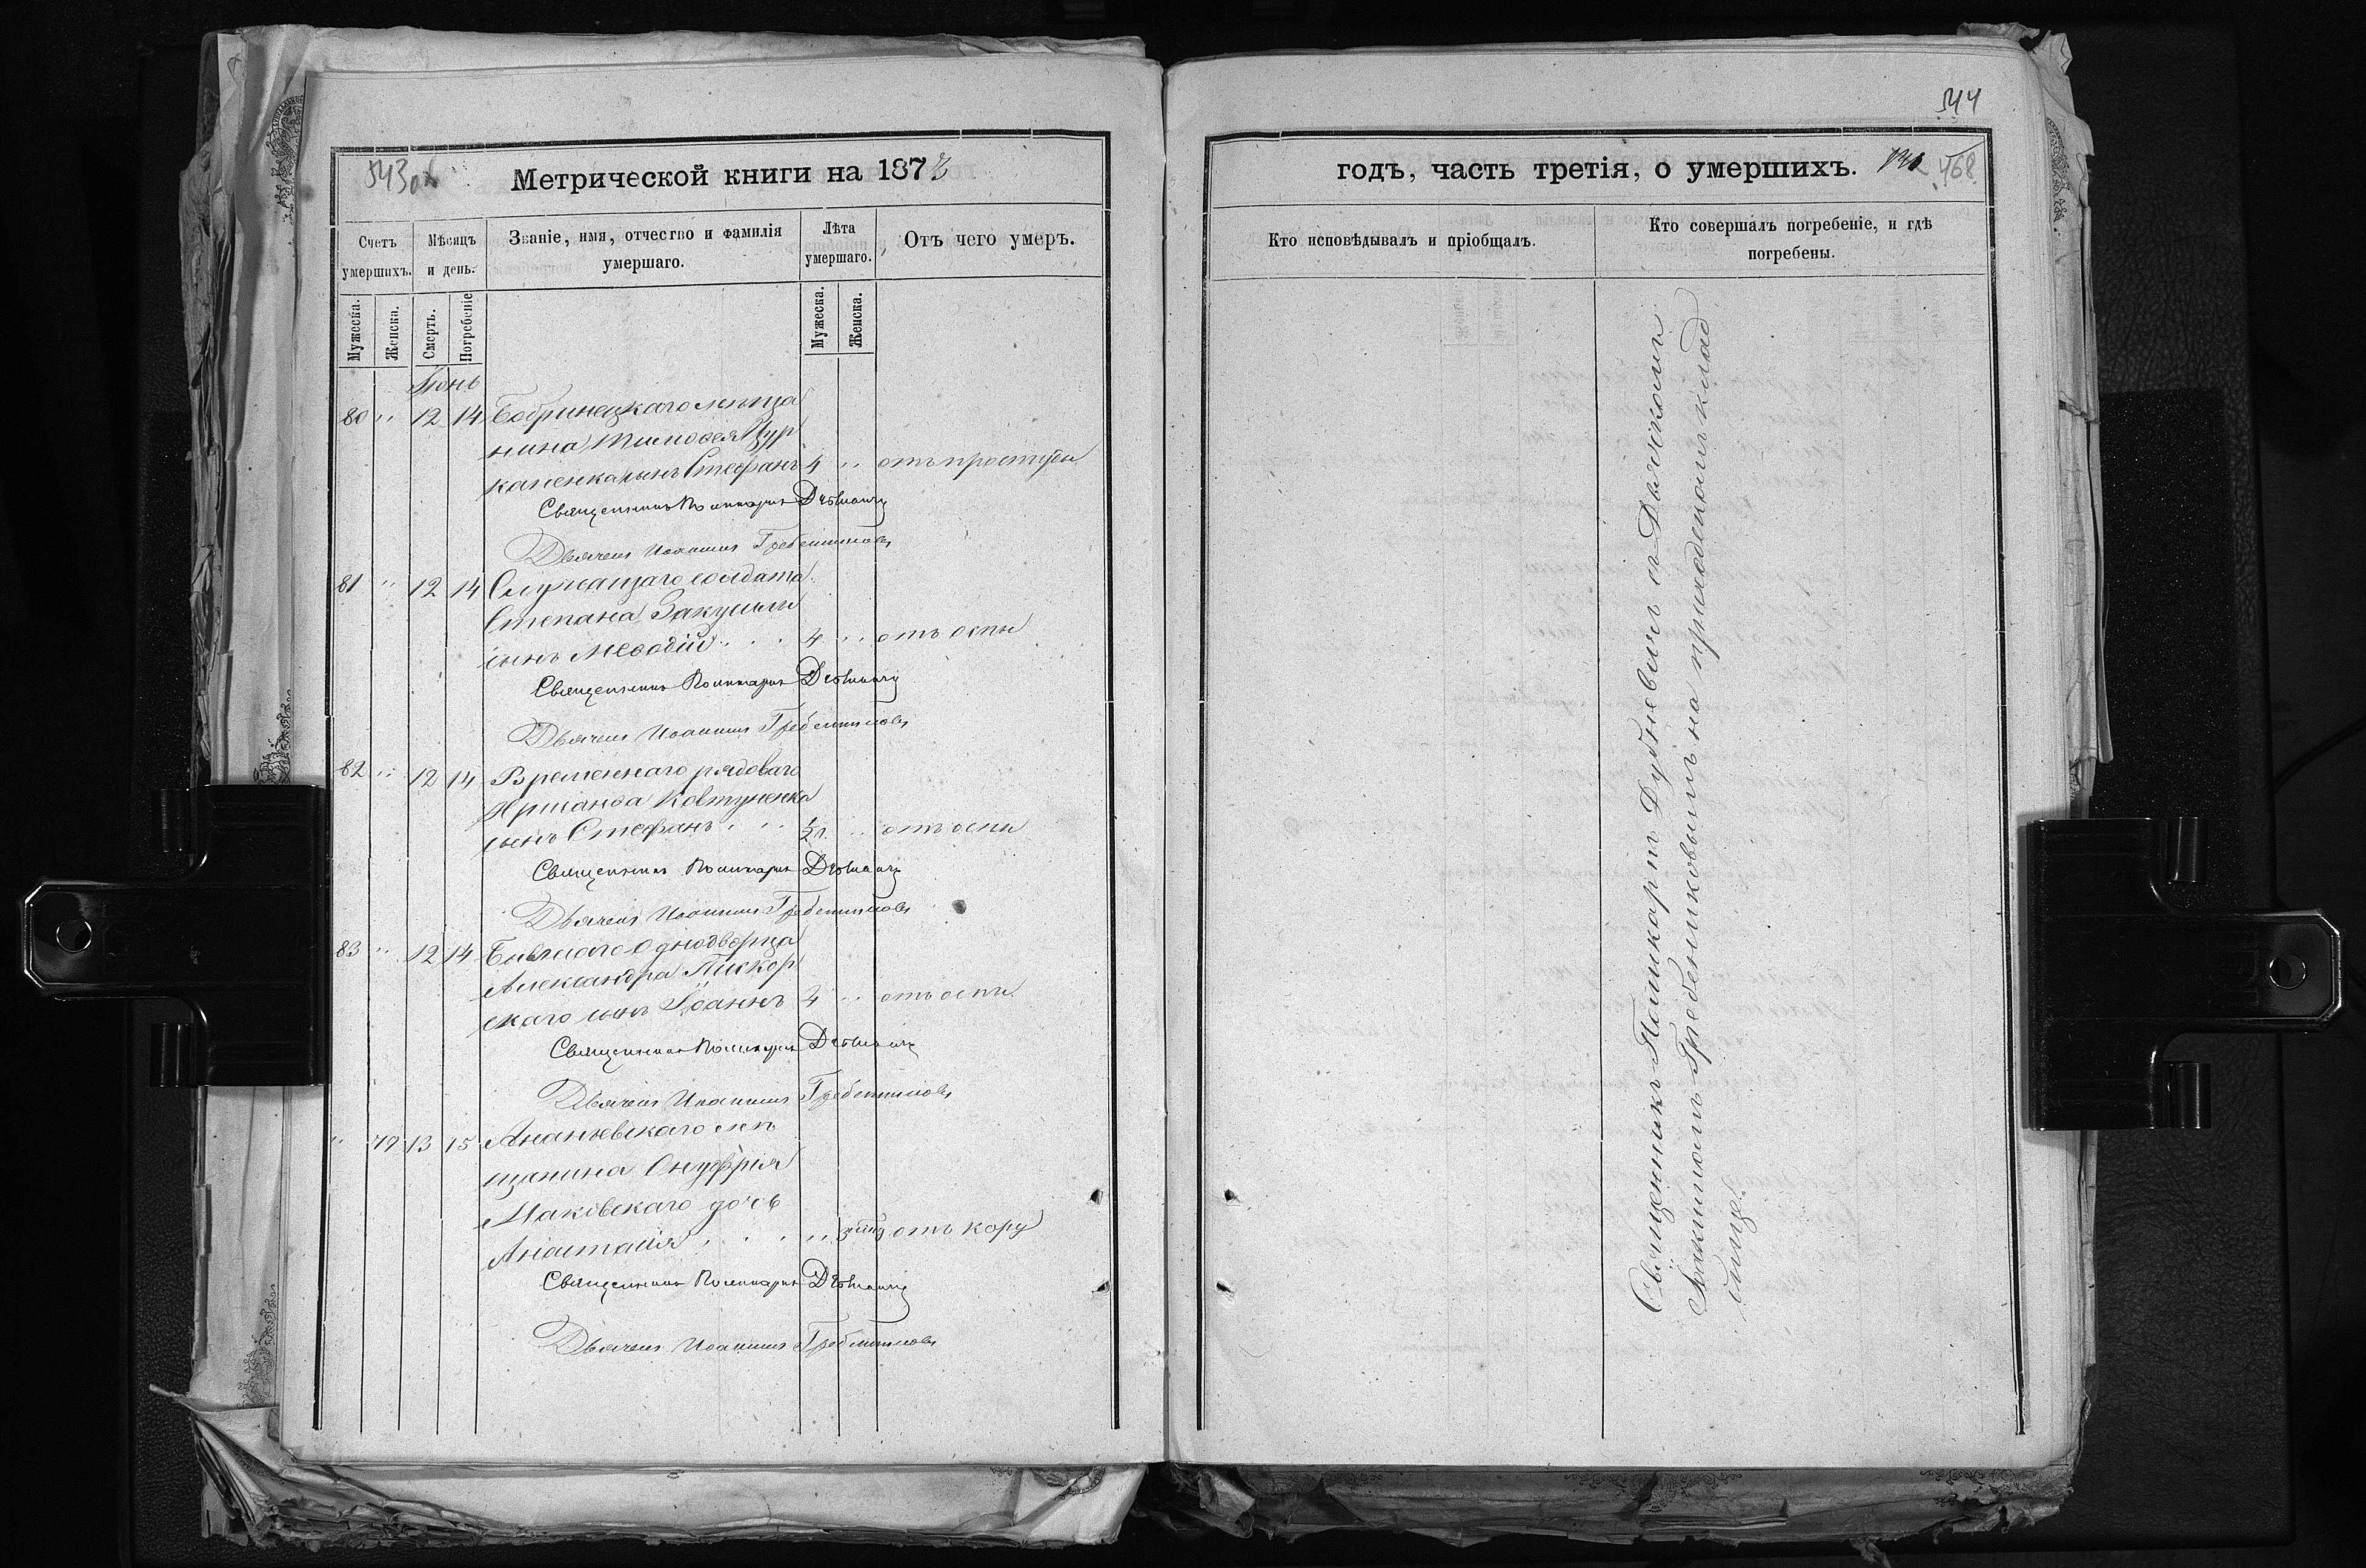 543об
Метрической книги на 1873
Счетъ умершихъ.
Мѣсяцъ и день.
Званіе, имя, отчество и фамилія умершаго.
Лѣта умершаго.
Отъ чего умеръ.
Мужеска.
Женска.
Смерть.
Погребеніе
Мужеска.
Женска.
Іюнь
80 " 12 14 Бобринецкаго мѣща
нина Тимофея Цур
каненка сынъ Стефанъ 4 " отъ простуды
Священникъ Поликарпъ Дубневичъ
Дьячекъ Иоакимъ Гребенниковъ
81 " 12 14 Служащаго солдата
Степана
сынъ Меѳодій 4 " отъ оспы
Священникъ Поликарпъ Дубневичъ
Дьячекъ Иоакимъ Гребенниковъ
82 " 12 14 Временнаго рядоваго
Хрисанфа Ковтуненка
сынъ Стефанъ ½ г. " отъ оспы
Священникъ Поликарпъ Дубневичъ
Дьячекъ Иоакимъ Гребенниковъ
83 " 12 14 Бывшаго Однодворца
Александра Пискор
скаго сынъ Іоаннъ 4 " отъ оспы
Священникъ Поликарпъ Дубневичъ
Дьячекъ Иоакимъ Гребенниковъ
" 79 13 15 Ананьевскаго мѣ
щанина Онуфрія
Маковскаго дочь
Анастасія " отъ кору
Священникъ Поликарпъ Дубневичъ
Дьячекъ Иоакимъ Гребенниковъ
544
годъ, часть третія, о умершихъ. 468
Кто исповѣдывалъ и пріобщалъ.
Кто совершалъ погребеніе, и гдѣ
погребены.
Священникъ Поликарпъ Дубневичъ съ Дьячкомъ
Іоакимомъ Гребенниковымъ на приходскомъ клад
бищѣ.